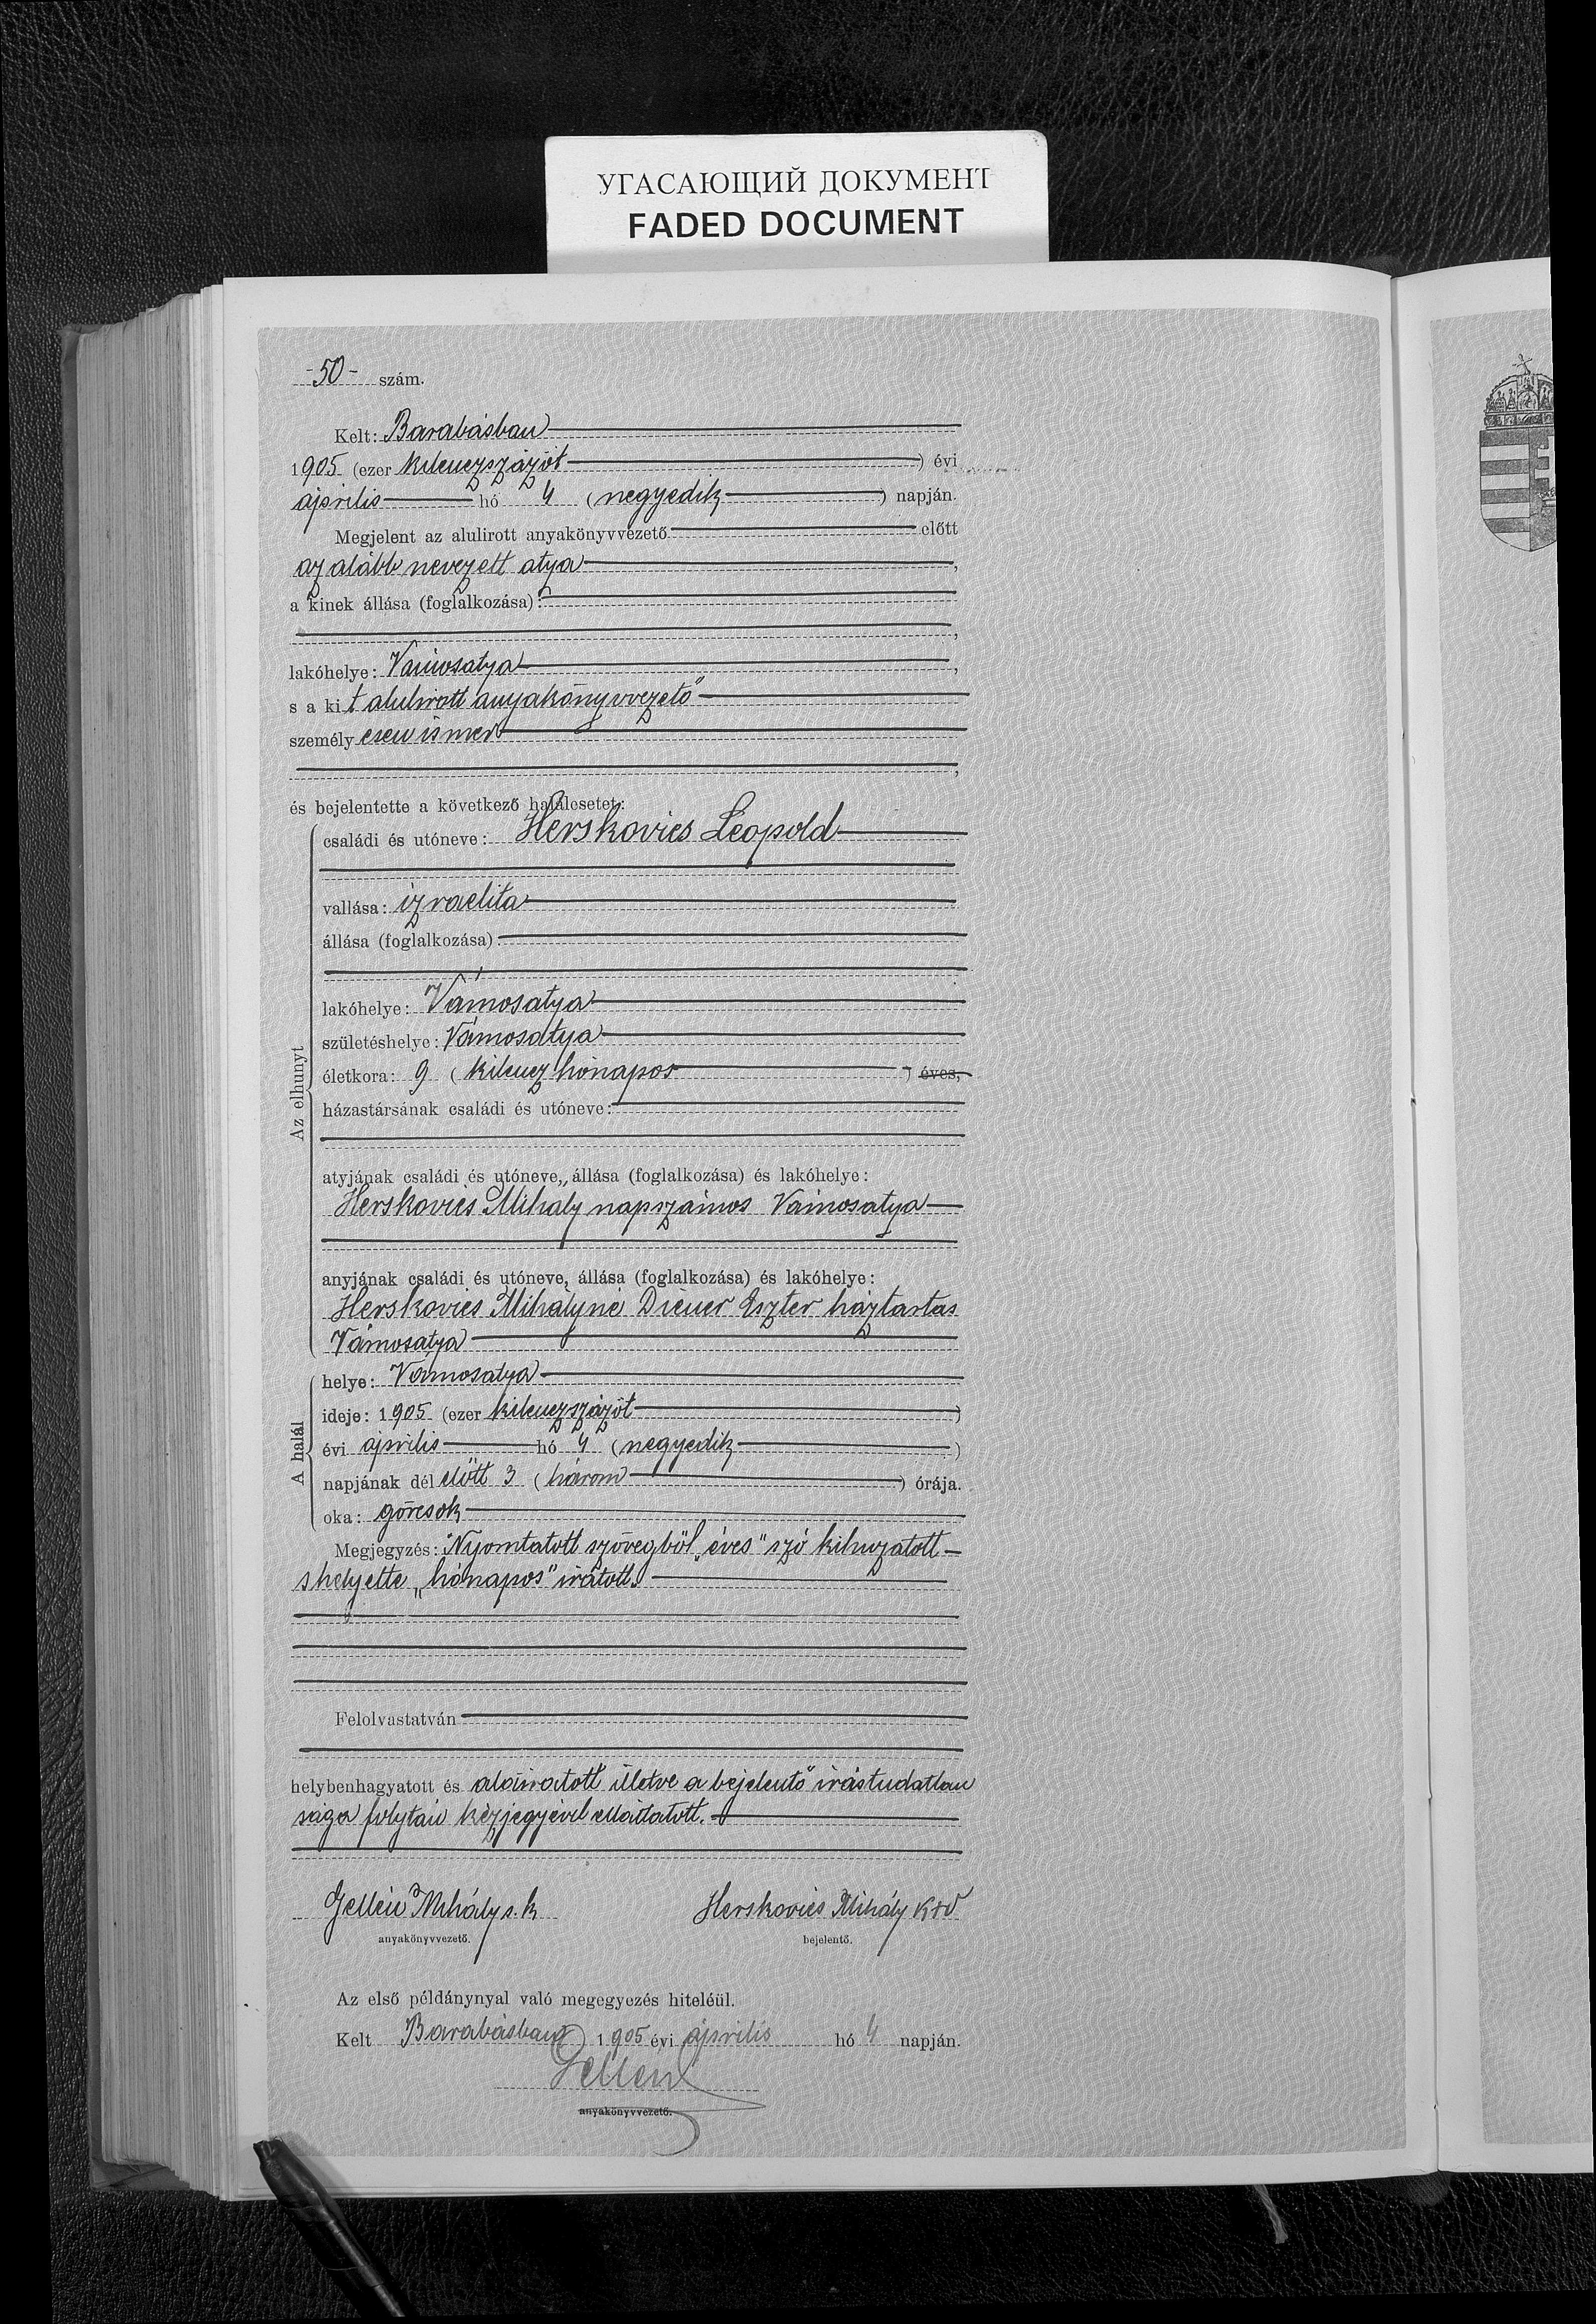 УГАСАЮЩИЙ ДОКУМЕНТ
FADED DOCUMENT
-50- szám.
Kelt: Barabásban
1905 (ezer kilenczszázöt) évi
április hó 4 (negyedik) napján.
Megjelent az alulirott anyakönyvvezető előtt
az alább nevezett atya,
a kinek állása (foglalkozása):
lakóhelye: Vámosatya,
s a kit alulirott anyakönyvvezető
személyesen ismer
és bejelentette a következő halálesetet:
Az elhunyt
családi és utóneve: Herskovics Leopold
vallása: izraelita
állása (foglalkozása):
lakóhelye: Vámosatya
születéshelye: Vámosatya
életkora: 9 (kilencz hónapos) éves,
házastársának családi és utóneve:
atyjának családi és utóneve, állása (foglalkozása) és lakóhelye:
Herskovics Mihály napszámos Vámosatya
anyjának családi és utóneve, állása (foglalkozása) és lakóhelye:
Herskovics Mihályné Diener Eszter háztartás
Vámosatya
A halál
helye: Vámosatya
ideje: 1905 (ezer kilenczszázöt)
évi április hó 4 (negyedik)
napjának dél előtt 3 (három) órája.
oka: görcsök
Megjegyzés: Nyomtatott szövegből „éves" szó kihuzatott
s helyette „hónapos" iratott.
Felolvastatván
helybenhagyatott és aláiratott illetve a bejelentő irástudatlan
sága folytán kézjegyével elláttatott.
Gellén Mihály s. k
anyakönyvvezető.
Herskovics Mihály
bejelentő.
Az első példánynyal való megegyezés hiteléül.
Kelt Barabásban 1905 évi április hó 4 napján.
Gellén
anyakönyvvezető.